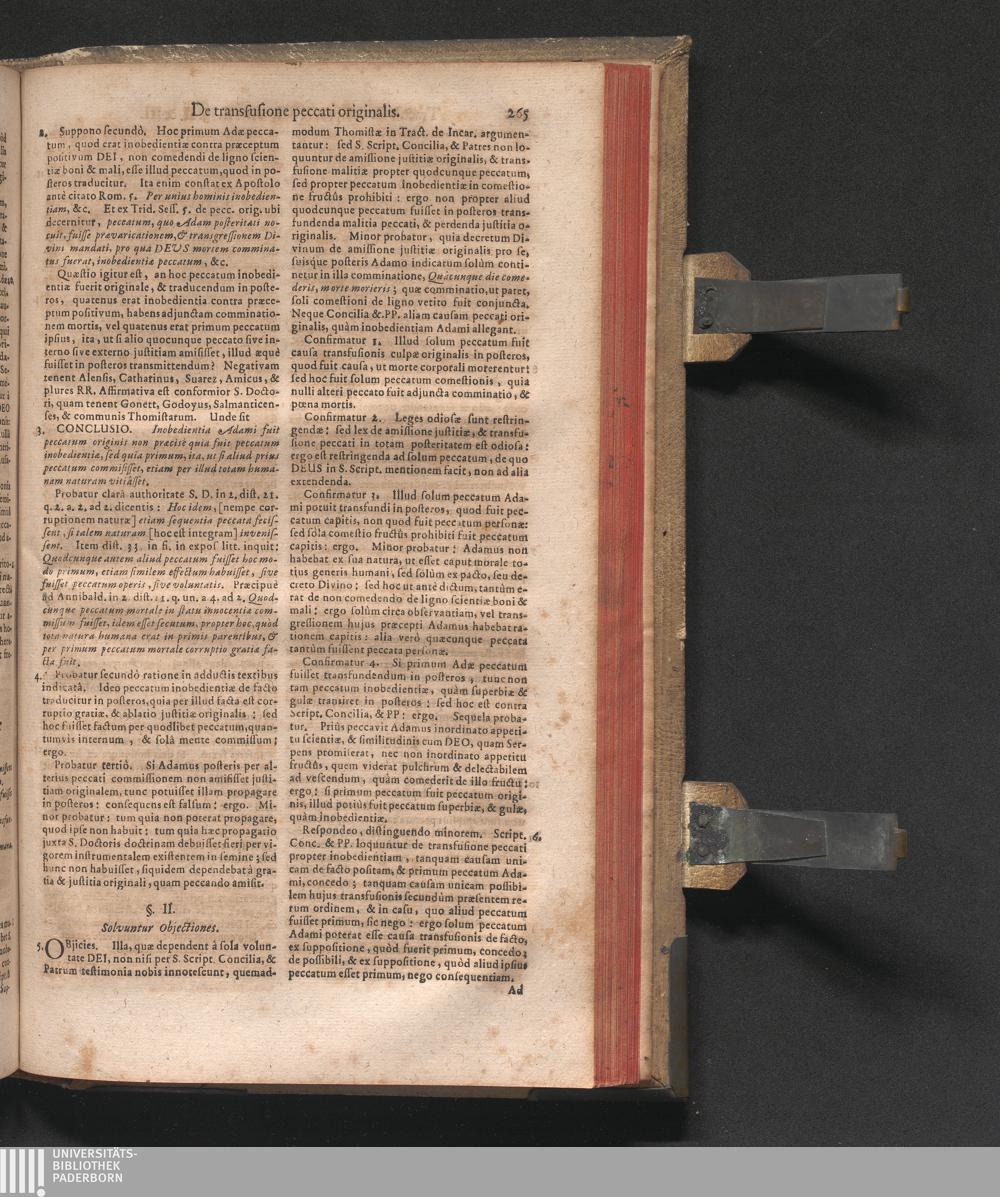 De transfusione peccati originalis.
265
2. Suppono secundò. Hoc primum Adæ pecca-
tum, quod erat inobedientiæ contra præceptum
positivum DEI, non comedendi de ligno scien-
tiæ boni & mali, esse illud peccatum, quod in po-
steros traducitur. Ita enim constat ex Apostolo
antè citato Rom. 5. Per unius hominis inobedien-
tiam, &c. Et ex Trid. Sess. 5. de pecc. orig. ubi
decernitur, peccatum, quo Adam posteritati no-
cuit, fuisse prævaricationem, & transgressionem Di-
vini mandati, pro quâ DEUS mortem commina-
tus fuerat, inobedientiæ peccatum, &c.
Quæstio igitur est, an hoc peccatum inobedi-
entiæ fuerit originale, & traducendum in poste-
ros, quatenus erat inobedientia contra præce-
ptum positivum, habens adjunctam comminatio-
nem mortis, vel quatenus erat primum peccatum
ipsius, ita, ut si alio quocunque peccato sive in-
terno sive externo justitiam amisisset, illud æquè
fuisset in posteros transmittendum? Negativam
tenent Alensis, Catharinus, Suarez, Amicus, &
plures RR. Affirmativa est conformior S. Docto-
ri, quam tenent Gonett, Godoyus, Salmanticen-
ses, & communis Thomistarum. Unde sit
3. CONCLUSIO. Inobedientia Adami fuit
peccatum originis non præcisè quia fuit peccatum
inobedientiæ, sed quia primum, ita, ut si aliud prius
peccatum commisisset, etiam per illud totam huma-
nam naturam vitiâsset.
Probatur clarâ authoritate S. D. in 2. dist. 21.
q. 2. a. 2. ad 2. dicentis: Hoc idem, [nempe cor-
ruptionem naturæ] etiam sequentia peccata fecis-
sent, si talem naturam [hoc est integram] invenis-
sent. Item dist. 33. in fi. in expos litt. inquit:
Quodcunque autem aliud peccatum fuisset hoc mo-
do primum, etiam similem effectum habuisset, sive
fuisset peccatum operis, sive voluntatis. Præcipuè
ad Annibald. in 2. dist. 21. q. un. a 4. ad 2. Quod-
cunque peccatum mortale in statu innocentiæ com-
missum fuisset, idem esset secutum, propter hoc, quòd
tota natura humana erat in primis parentibus, &
per primum peccatum mortale corruptio gratiæ fa-
cta fuit.
4. Probatur secundò ratione in adductis textibus
indicatâ. Ideo peccatum inobedientiæ de facto
traducitur in posteros, quia per illud facta est cor-
ruptio gratiæ, & ablatio justitiæ originalis; sed
hoc fuisset factum per quodlibet peccatum, quan-
tumvis internum, & solâ mente commissum;
ergo.
Probatur tertiò. Si Adamus posteris per al-
terius peccati commissionem non amisisset justi-
tiam originalem, tunc potuisset illam propagare
in posteros: consequens est falsum: ergo. Mi-
nor probatur: tum quia non poterat propagare,
quod ipse non habuit: tum quia hæc propagatio
juxta S. Doctoris doctrinam debuisset fieri per vi-
gorem instrumentalem existentem in semine; sed
hunc non habuisset, siquidem dependebat à gra-
tia & justitia originali, quam peccando amisit.
§. II.
Solvuntur Objectiones.
5. OBjicies. Illa, quæ dependent à sola volun-
tate DEI, non nisi per S. Script. Concilia, &
Patrum testimonia nobis innotescunt, quemad-
modum Thomistæ in Tract. de Incar. argumen-
tantur: sed S. Script. Concilia, & Patres non lo-
quuntur de amissione justitiæ originalis, & trans-
fusione malitiæ propter quodcunque peccatum,
sed propter peccatum inobedientiæ in comestio-
ne fructûs prohibiti: ergo non propter aliud
quodcunque peccatum fuisset in posteros trans-
fundenda malitia peccati, & perdenda justitia o-
riginalis. Minor probatur, quia decretum Di-
vinum de amissione justitiæ originalis pro se,
suisque posteris Adamo indicatum solùm conti-
netur in illa comminatione, Quâcunque die come-
deris, morte morieris; quæ comminatio, ut patet,
soli comestioni de ligno vetito fuit conjuncta.
Neque Concilia & PP. aliam causam peccati ori-
ginalis, quàm inobedientiam Adami allegant.
Confirmatur 1. Illud solum peccatum fuit
causa transfusionis culpæ originalis in posteros,
quod fuit causa, ut morte corporali morerentur:
sed hoc fuit solum peccatum comestionis, quia
nulli alteri peccato fuit adjuncta comminatio, &
pœna mortis.
Confirmatur 2. Leges odiosæ sunt restrin-
gendæ: sed lex de amissione justitiæ, & transfu-
sione peccati in totam posteritatem est odiosa:
ergo est restringenda ad solum peccatum, de quo
DEUS in S. Script. mentionem facit, non ad alia
extendenda.
Confirmatur 3. Illud solum peccatum Ada-
mi potuit transfundi in posteros, quod fuit pec-
catum capitis, non quod fuit peccatum personæ:
sed sola comestio fructûs prohibiti fuit peccatum
capitis: ergo. Minor probatur: Adamus non
habebat ex sua natura, ut esset caput morale to-
tius generis humani, sed solùm ex pacto, seu de-
creto Divino; sed hoc ut antè dictum, tantùm e-
rat de non comedendo de ligno scientiæ boni &
mali: ergo solùm circa observantiam, vel trans-
gressionem hujus præcepti Adamus habebat ra-
tionem capitis: alia verò quæcunque peccata
tantùm fuissent peccata personæ.
Confirmatur 4. Si primum Adæ peccatum
fuisset transfundendum in posteros, tunc non
tam peccatum inobedientiæ, quàm superbiæ &
gulæ transiret in posteros: sed hoc est contra
Script. Concilia, & PP: ergo. Sequela proba-
tur. Priùs peccavit Adamus inordinato appeti-
tu scientiæ, & similitudinis cum DEO, quam Ser-
pens promiserat, nec non inordinato appetitu
fructûs, quem viderat pulchrum & delectabilem
ad vescendum, quàm comederit de illo fructu:
ergo: si primum peccatum fuit peccatum origi-
nis, illud potiùs fuit peccatum superbiæ, & gulæ,
quàm inobedientiæ.
Respondeo, distinguendo minorem. Script. 6.
Conc. & PP. loquuntur de transfusione peccati
propter inobedientiam, tanquam causam uni-
cam de facto positam, & primum peccatum Ada-
mi, concedo; tanquam causam unicam possibi-
lem hujus transfusionis secundùm præsentem re-
rum ordinem, & in casu, quo aliud peccatum
fuisset primum, sic nego: ergo solum peccatum
Adami poterat esse causa transfusionis de facto,
ex suppositione, quòd fuerit primum, concedo;
de possibili, & ex suppositione, quòd aliud ipsius
peccatum esset primum, nego consequentiam.
Ad
UNIVERSITÄTS-
BIBLIOTHEK
PADERBORN